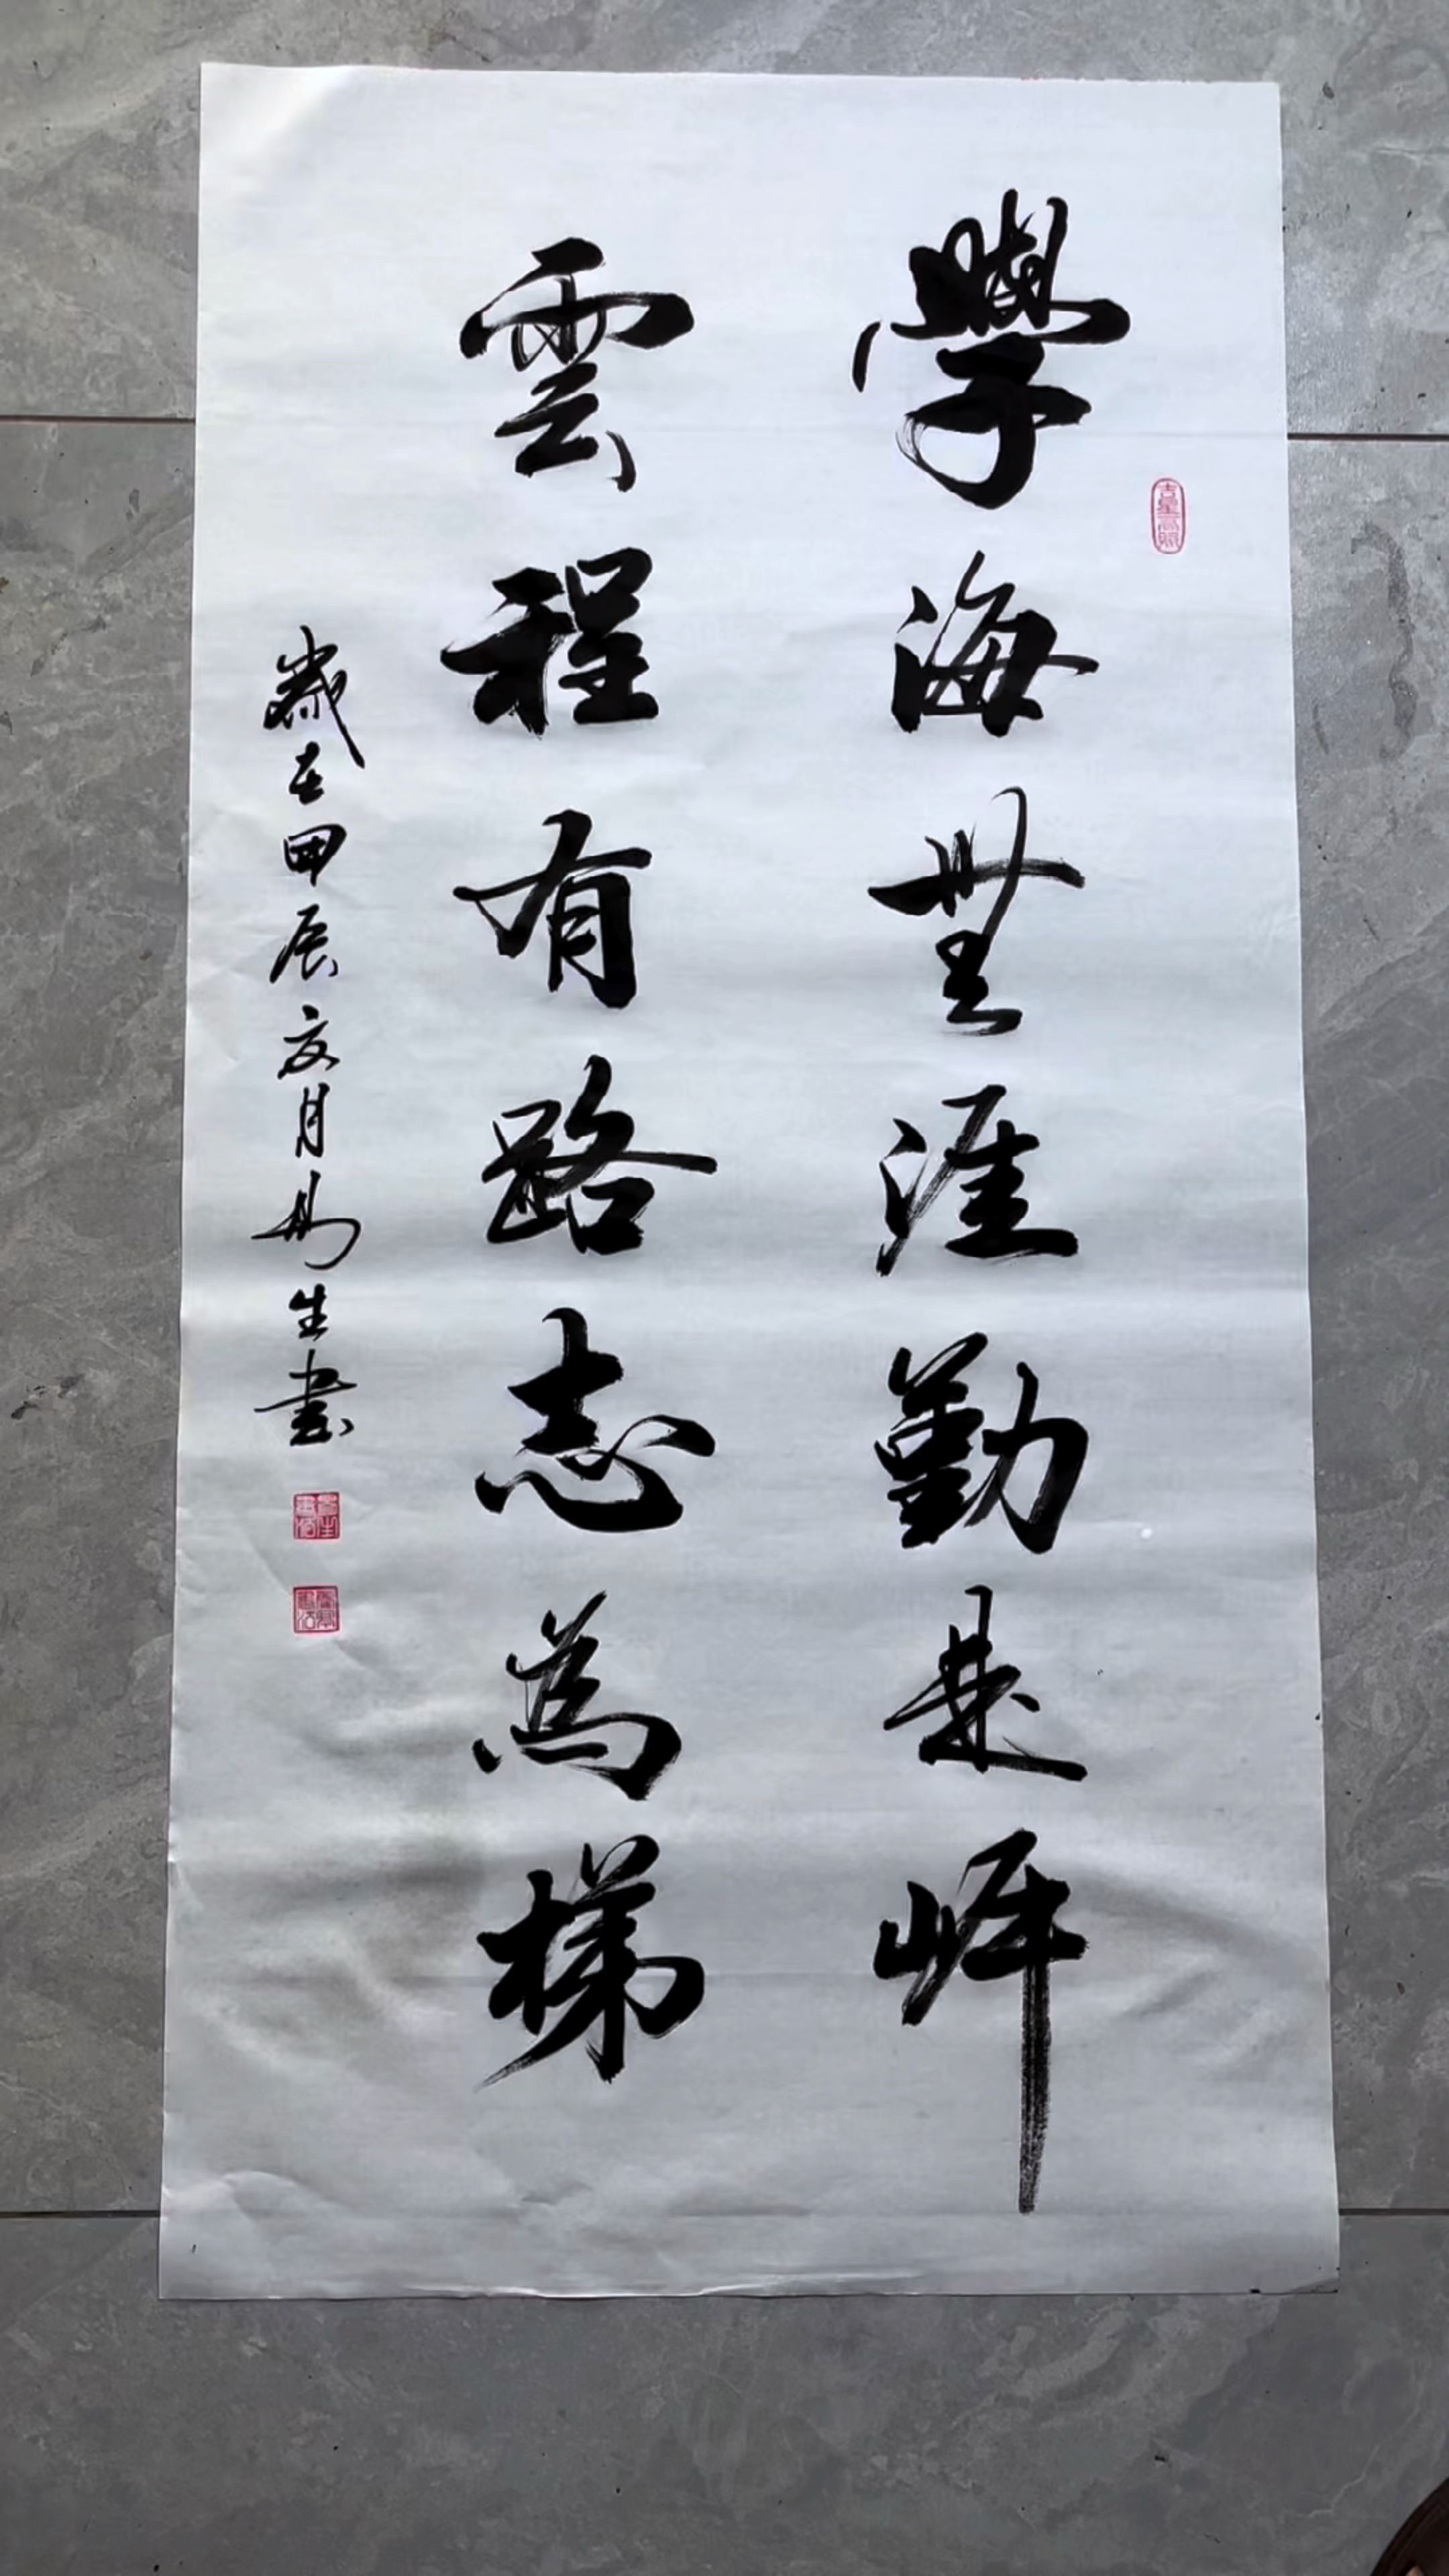 學海無涯勤是岸
雲程有路志為梯
歲在甲辰文月
生書
吉星高照